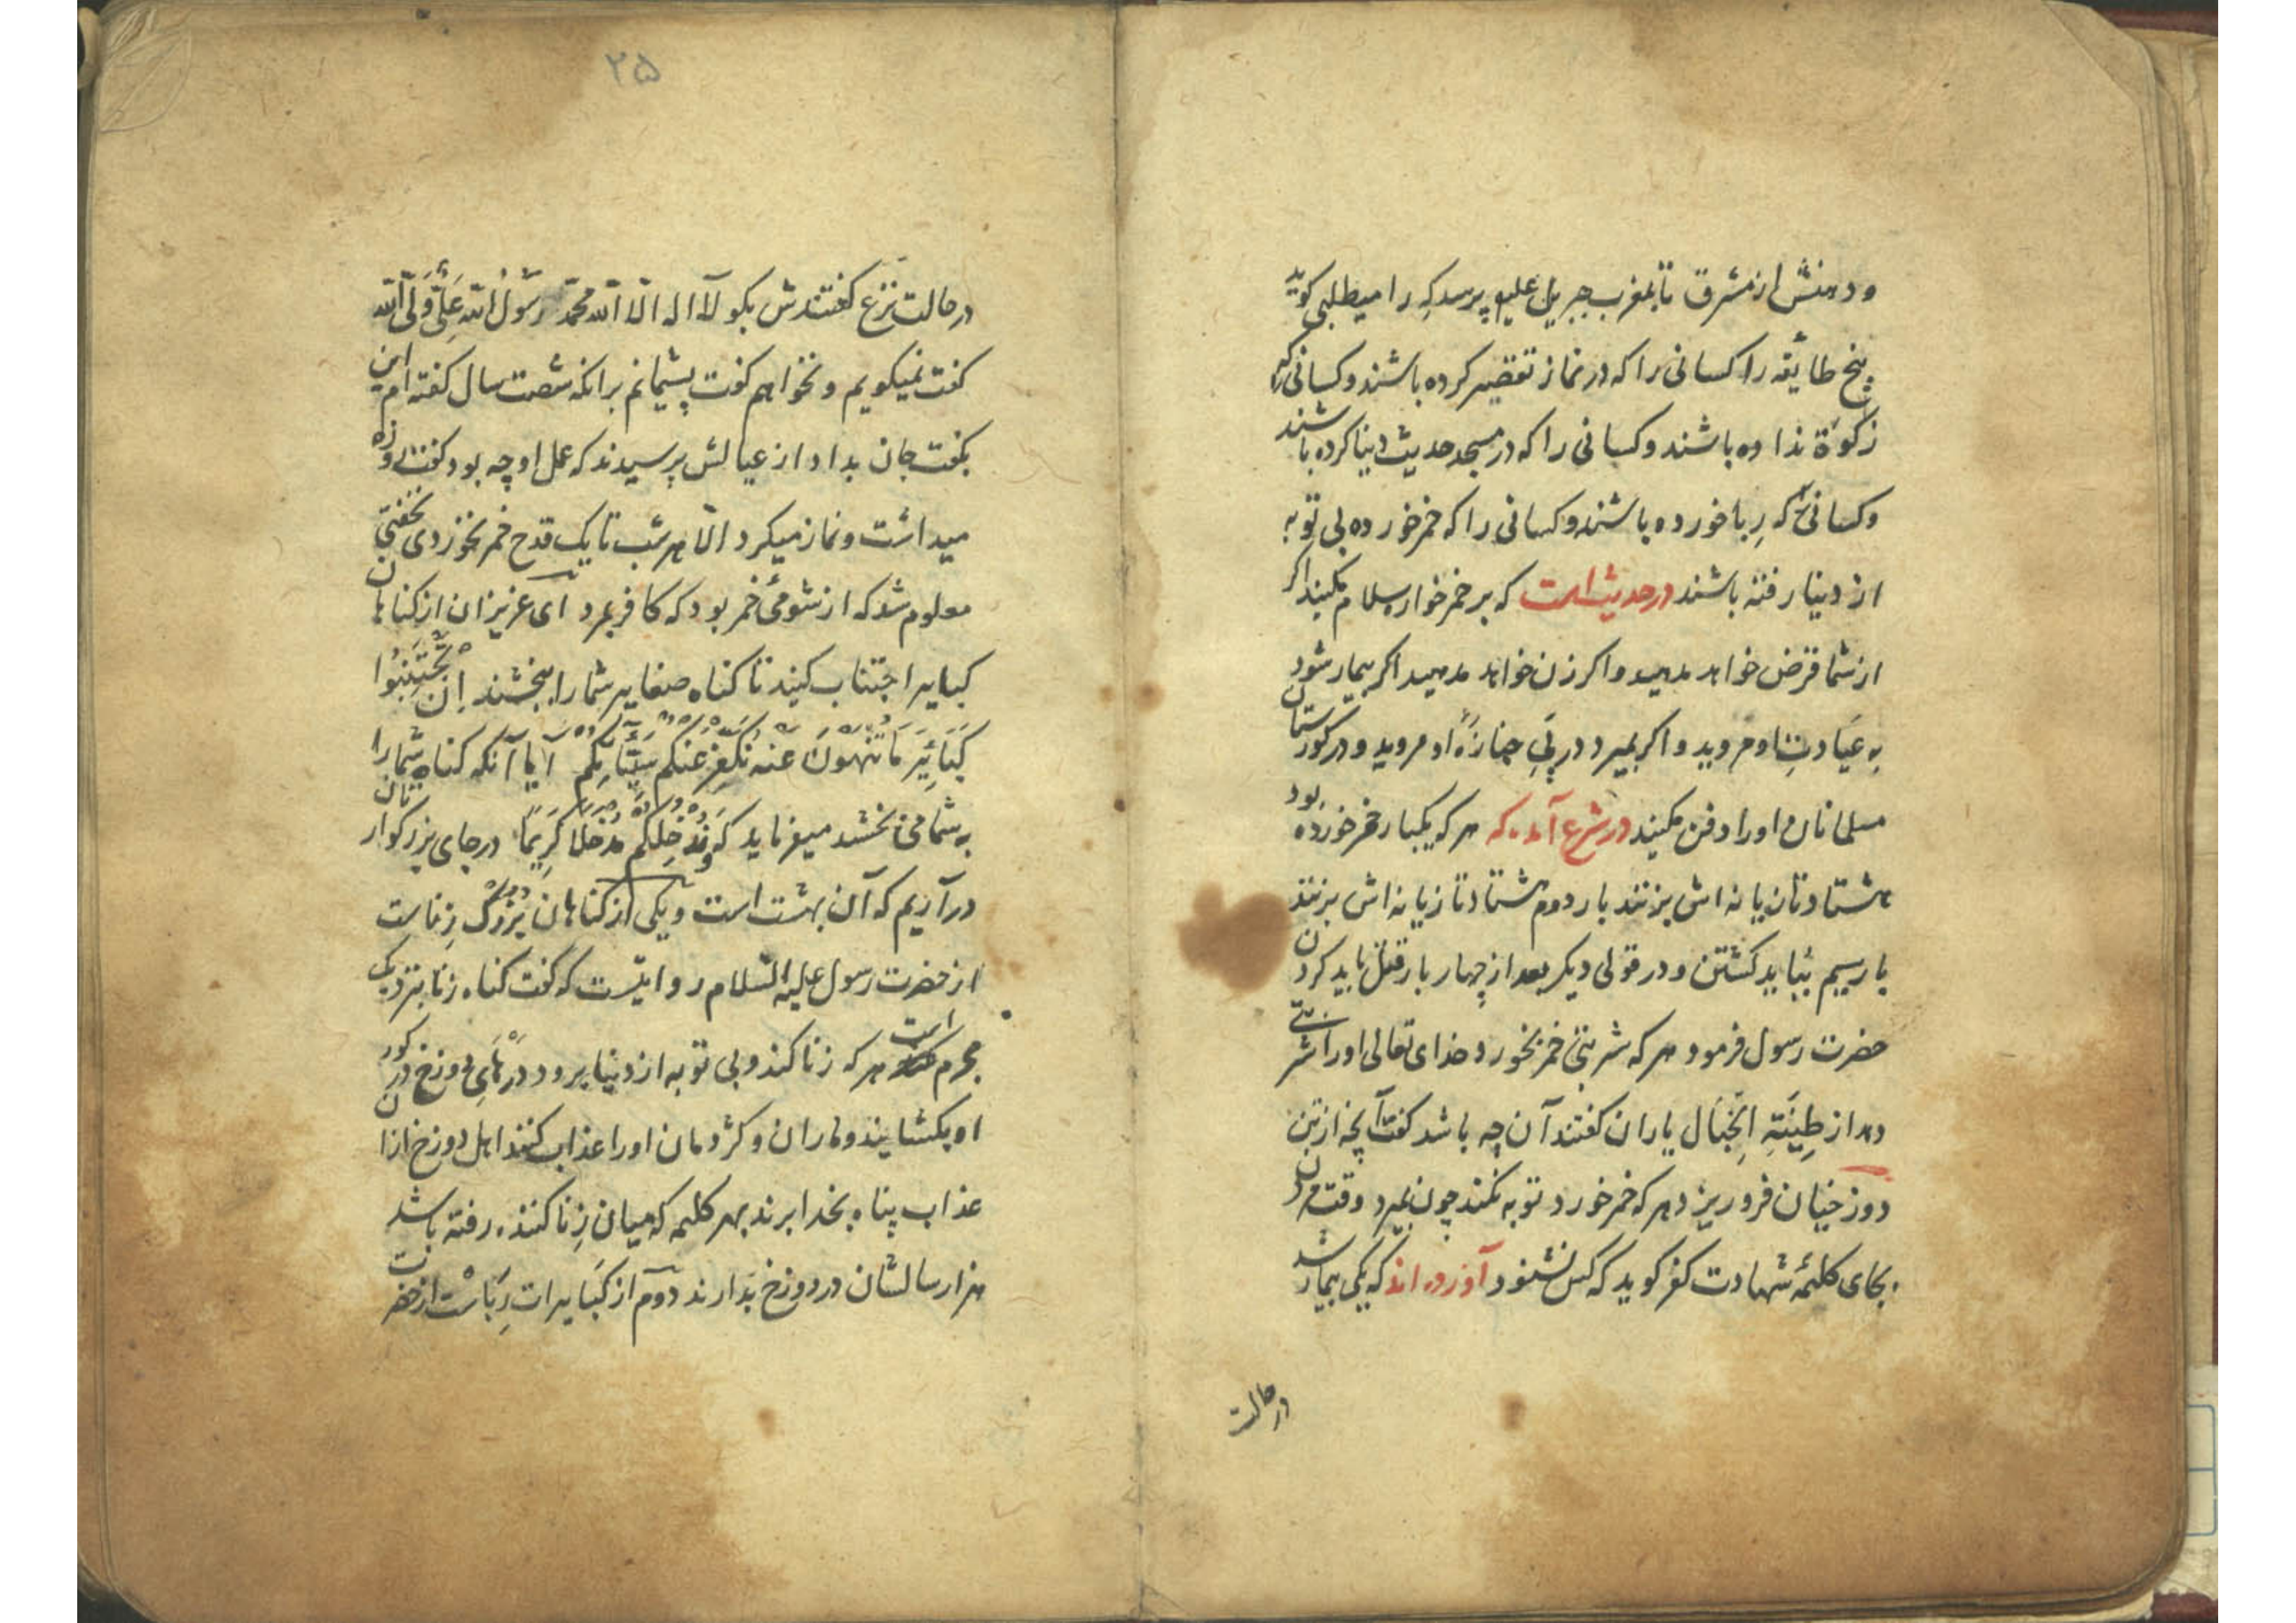 و دهنش از مشرق تا بمغرب جبریل علیه پرسد که را میطلبی کوید
پنج طایفه را کسانی را که در نماز تقصیر کرده باشند و کسانی را که
زکوٰة نداده باشند و کسانی را که در مسجد حدیث دنیا کرده باشند
و کسانی که رِبا خورده باشند و کسانی را که خمر خورده بی توبه
از دنیا رفته باشند در حدیث است که بر خمر خواره سلام مکنید اکر
از شما قرض خواهد مدهید و اکر زن خواهد مدهید اکر بیمار شود
بِه عیَادتِ او مروید و اکر بمیرد در پَیِ جنازۀ او مروید و در کورستان
مسلمانان او را دفن مکنید در شرع آمده که هر که یکبار خمر خورده بود
هشتاد تازیانه اش بزنند بار دوم هشتاد تازیانه اش بزنند
بار سیم بباید کشتن و در قولی دیکر بعد از چهار بار قتل باید کردن
حضرت رسول فرمود هر که شربتی خمر بخورد خدای تعالی او را شربتی
دهد از طِینَةِ الخَبَال یاران کفتند آن چه باشد کفت آنچه از تن
دوزخیان فرو ریزد هر که خمر خورد توبه نکند چون بمیرد وقت مردن
بجای کلمۀ شهادت کفر کوید که کس نشنود آورده اند که یکی بیمار شد
در حالت
۲۵
در حالت نزع کفتندش بکو لآ اله الّا الله محمّد رسُول الله عَلیٌّ وَلیُّ الله
کفت نمیکویم و نخواهم کفت پشیمانم برانکه شصت سال کفته ام این
بکفت جان بداد از عیالش پرسیدند که عمل او چه بود کفت روزه
میداشت و نماز میکرد الّا هر شب تا یک قدح خمر نخوردی نخفتی
معلوم شد که از شومیٔ خمر بود که کافر بمرد ای عزیزان از کناهان
کبایر اجتناب کنید تا کناه صغایر شما را ببخشند اِن تَجْتَنِبُوا
کَبَائِرَ مَا تُنْهَوْنَ عَنْهُ نُکَفِّرْ عَنْکُمْ سَیِّئَاتِکُم آیا آنکه کناه شما را
به شما می بخشد میفرماید که وَنُدْخِلْکُم مُدْخَلًا کَرِیمًا در جای بزرکوارتان
در آریم که آن بهشت است و یکی از کناهان بزرک زِناست
از حضرت رسول علیه السّلام روایتست که کفت کناه زنا بنزدیک
مجرم است هر که زنا کند و بی توبه از دنیا برود درهایِ دوزخ در کور
او بکشایند و ماران و کژدمان او را عذاب کنند اهل دوزخ ازان
عذاب پناه بخدا برند بهر کلمه که میان زِنا کننده رفته باشد
هزار سالشان در دوزخ بدارند دوّم از کبَایرات رِبَاست از حضرت